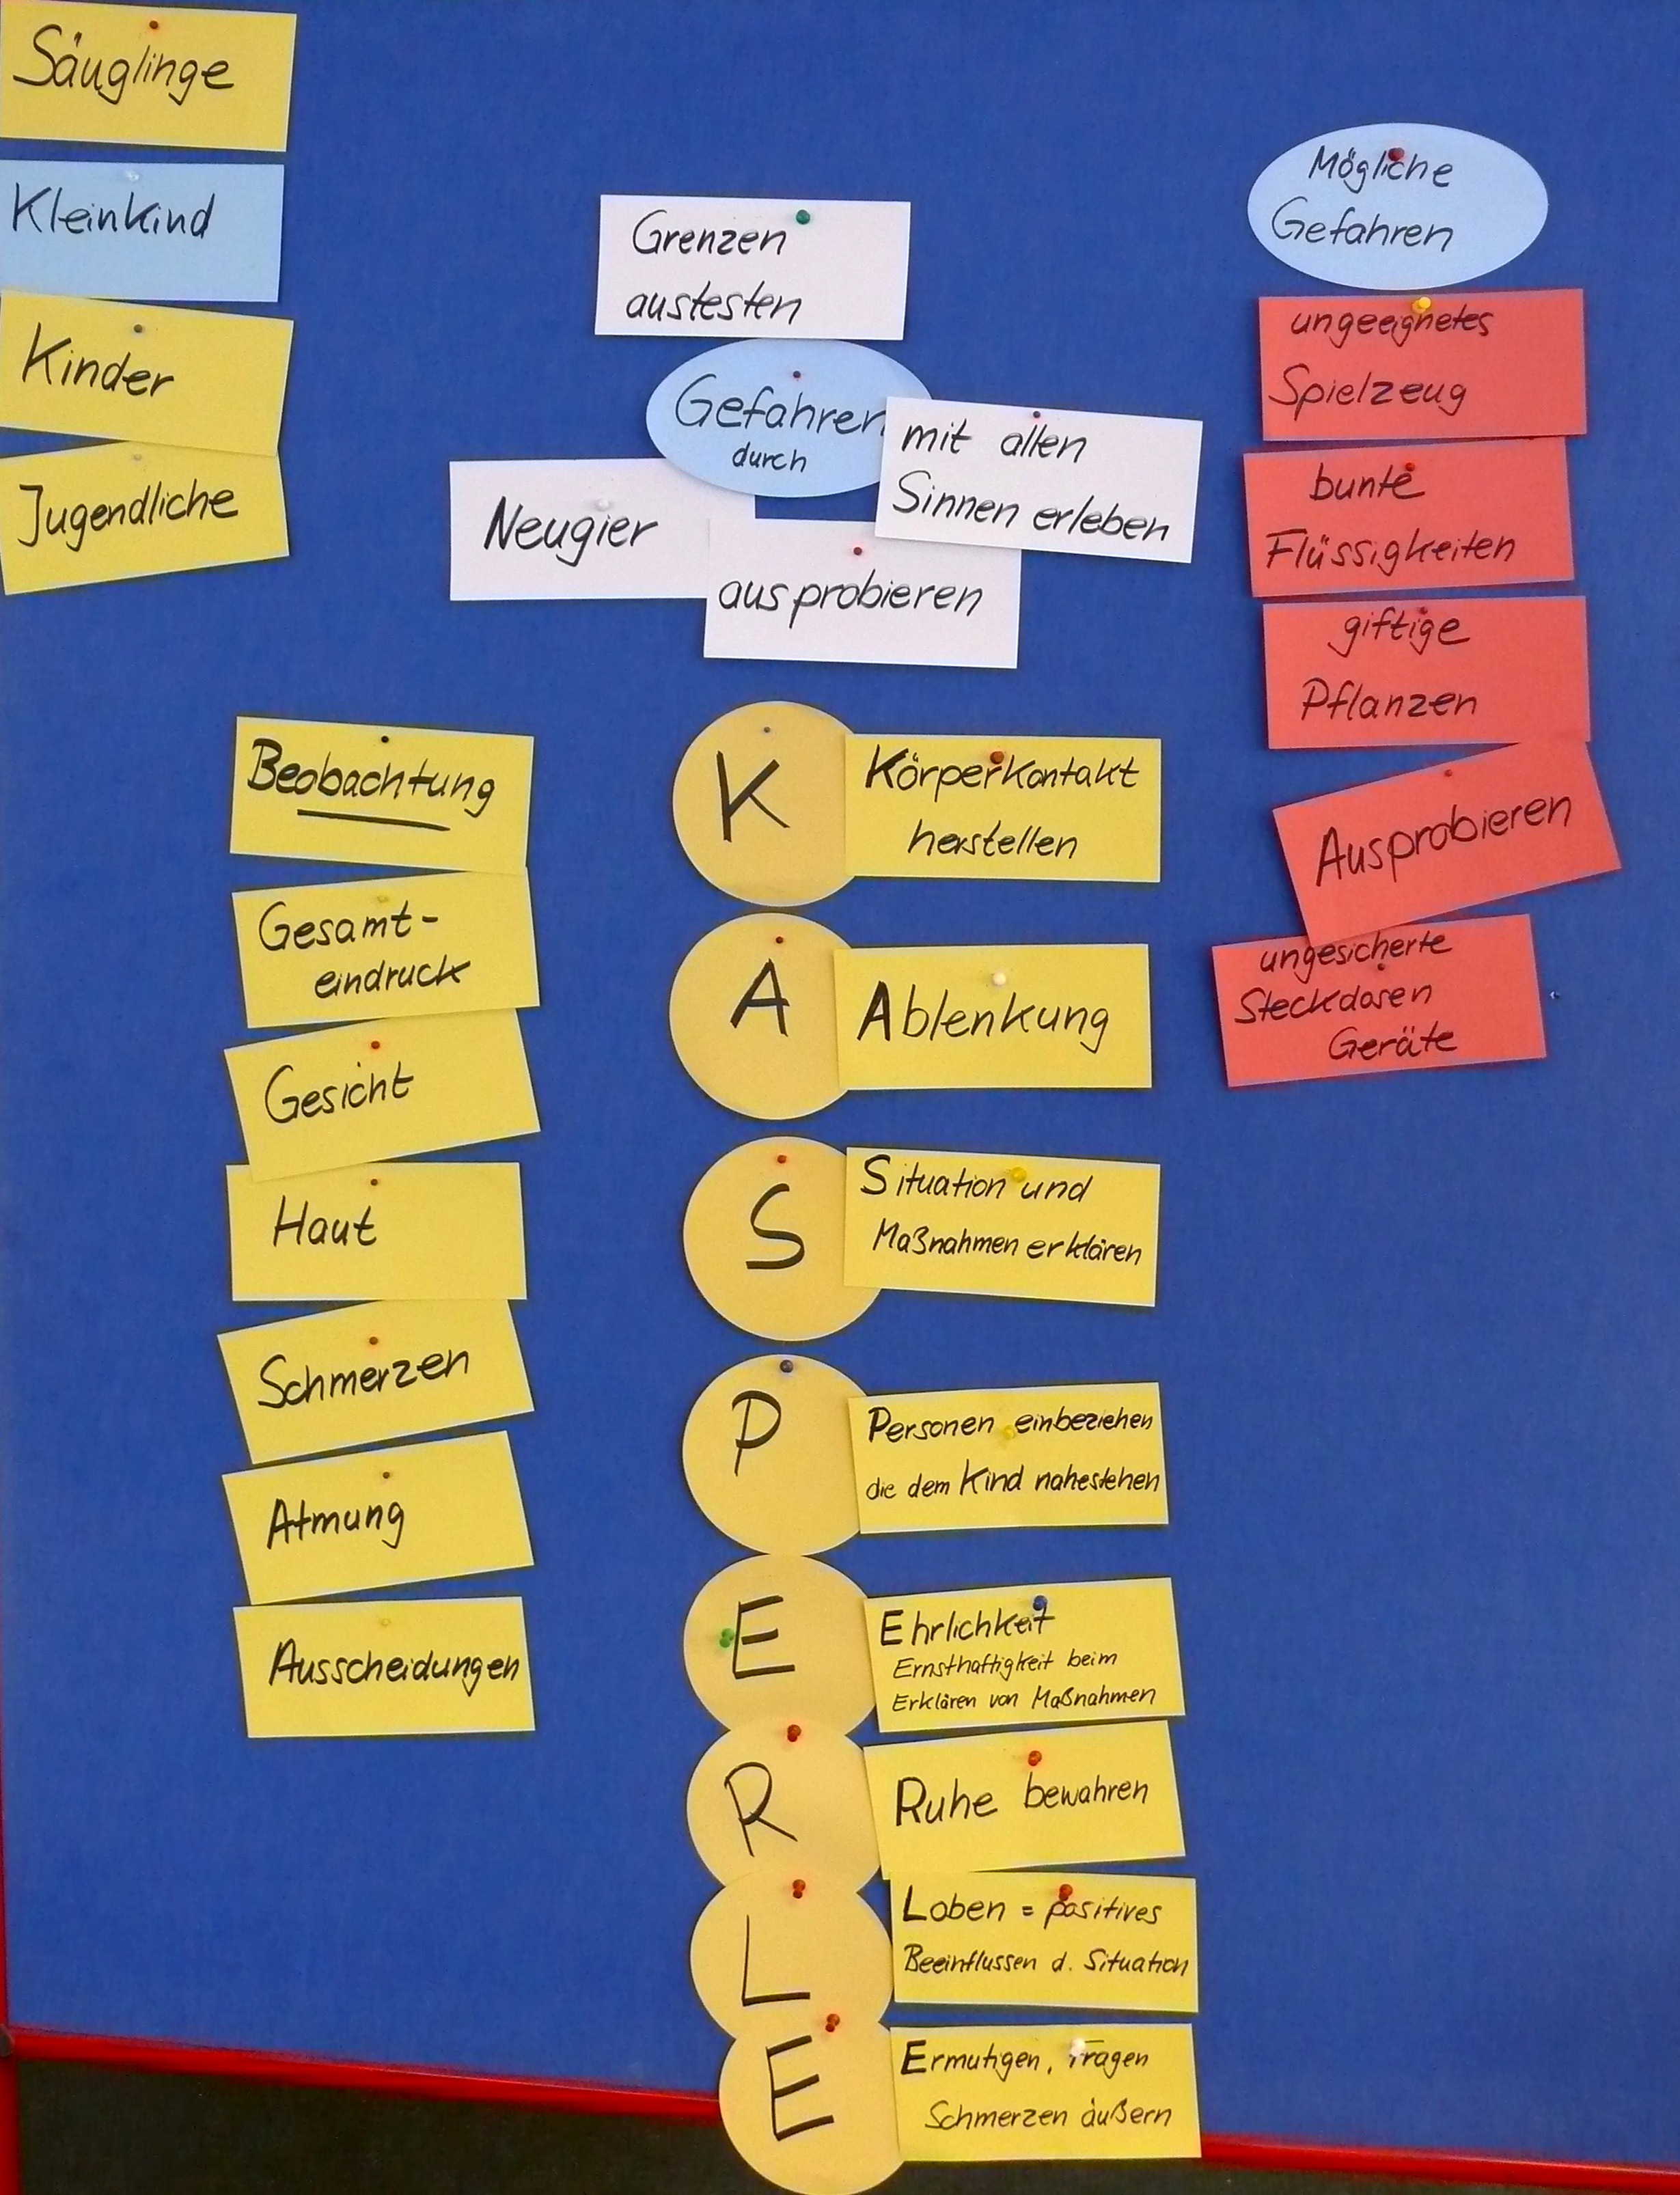 Säuglinge
Kleinkind
Kinder
Jugendliche
Grenzen
austesten
Gefahren
durch
mit allen
Sinnen erleben
Neugier
ausprobieren
Mögliche
Gefahren
ungeeignetes
Spielzeug
bunte
Flüssigkeiten
giftige
Pflanzen
Ausprobieren
ungesicherte
Steckdosen
Geräte
Beobachtung
Gesamt-
eindruck
Gesicht
Haut
Schmerzen
Atmung
Ausscheidungen
K
Körperkontakt
herstellen
A
Ablenkung
S
Situation und
Maßnahmen erklären
P
Personen einbeziehen
die dem Kind nahestehen
E
Ehrlichkeit
Ernsthaftigkeit beim
Erklären von Maßnahmen
R
Ruhe bewahren
L
Loben = positives
Beeinflussen d. Situation
E
Ermutigen, Fragen
Schmerzen äußern